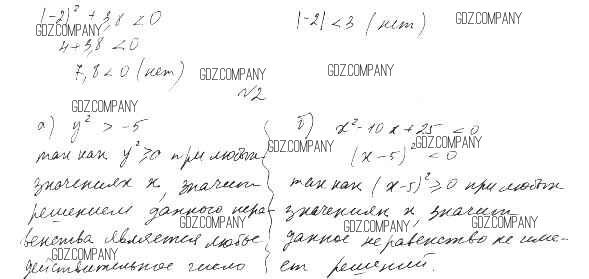 (-2)² + 3,8 < 0
|-2| < 3 (нет)
4+3,8 < 0
7,8 < 0 (нет)
√2
а) y² > -5
так как y² ≥ 0 при любых
значениях х, значит
решением данного нера-
венства является любое
действительное число
б) x² - 10x + 25 < 0
(x-5)² < 0
так как (x-5)² ≥ 0 при любых
значениях х, значит
данное неравенство не име-
ет решений.
GDZ.COMPANY
GDZ.COMPANY
GDZ.COMPANY
GDZ.COMPANY
GDZ.COMPANY
GDZ.COMPANY
GDZ.COMPANY
GDZ.COMPANY
GDZ.COMPANY
GDZ.COMPANY
GDZ.COMPANY